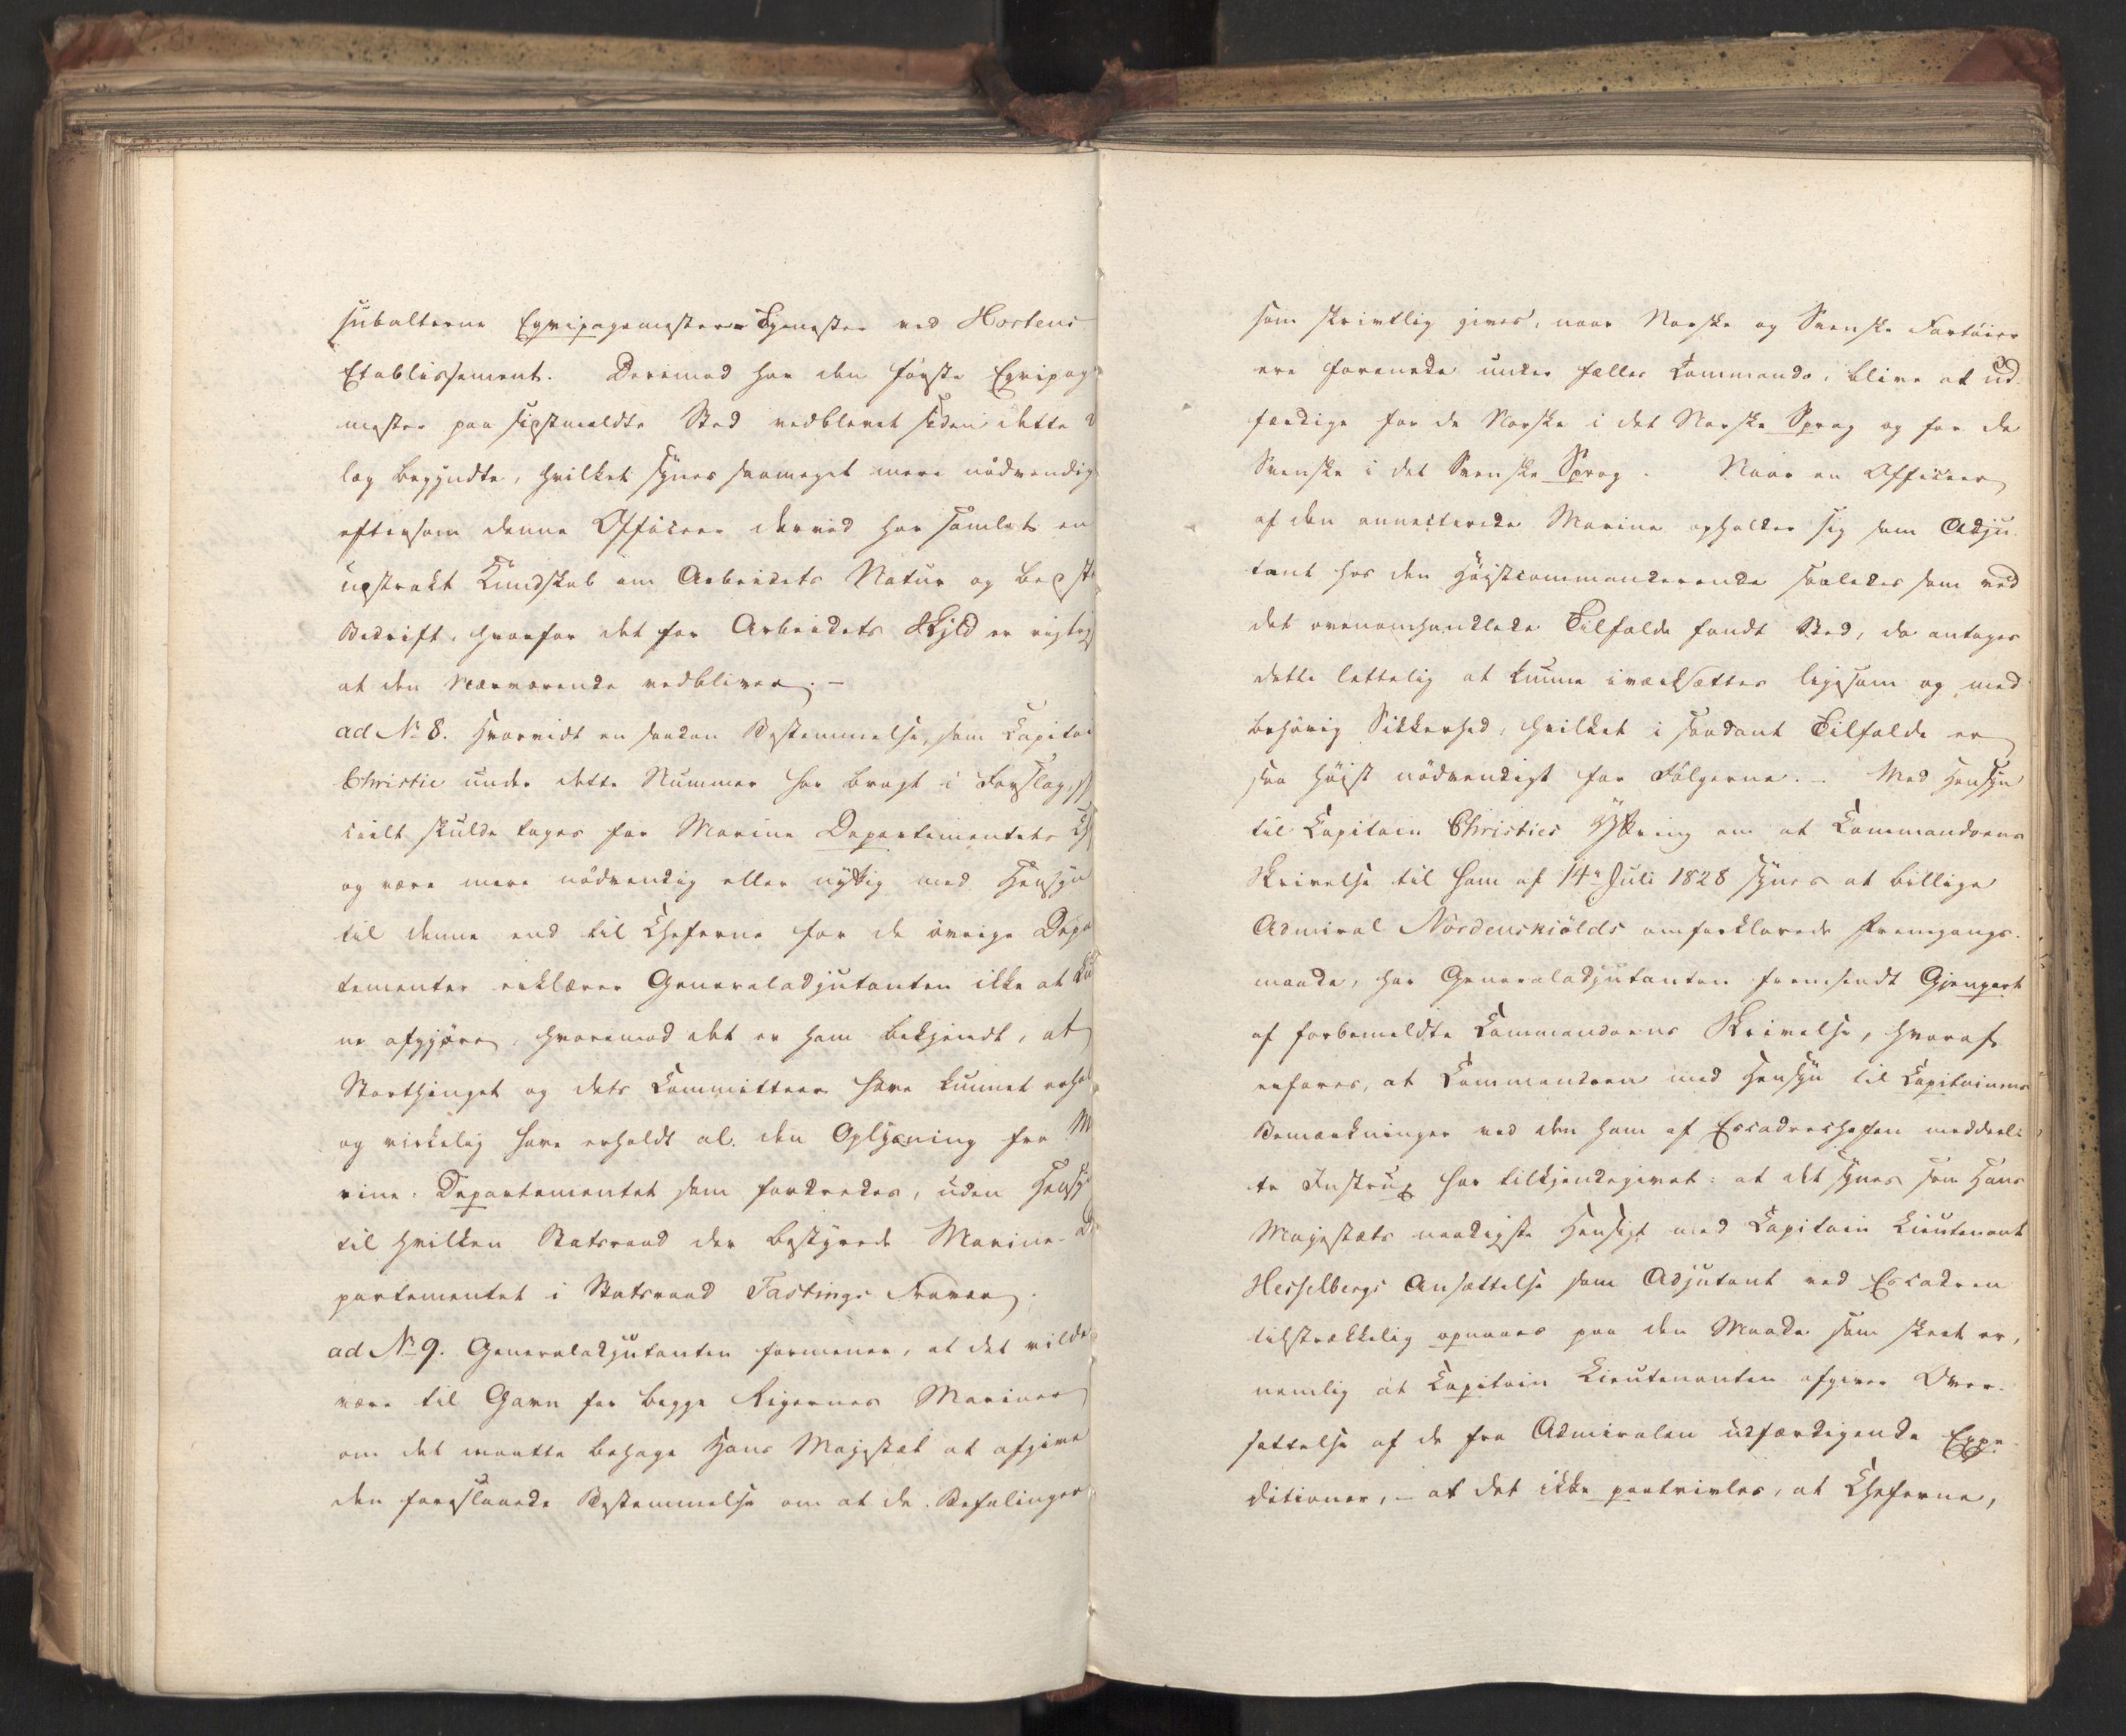 subalterne Eqvipagemester-Tjenester ved Hortens
Etablissement. Derimod har den første Eqvipage
mester paa sidstmeldte Sted vedblevet siden dette
læg begyndte, hvilket synes saameget mere nødvendigt
eftersom denne Officeer derved har samlet en
udstrakt Kundskab om Arbeidets Natur og bedste
Bedrift, hvorfor det for Arbeidets Skyld er vigtigt
at den Nærværende vedbliver. –
ad No 8. Hvorvidt en saadan Bestemmelse, som Capitain
Christie under dette Nummer har bragt i Forslag,
cielt skulde tages for Marine Departementets
og være mere nødvendig eller nyttig med Hensyn
til denne end til Cheferne for de øvrige Depar
tementer erklærer Generaladjutanten ikke at kun
ne afgjøre, hvoremod det er ham bekjendt, at
Storthinget og dets Committeer have kunnet erholde
og virkelig have erholdt al den Oplysning fra Ma
rine-Departementet som fordredes, uden Hensyn
til hvilken Statsraad der bestyrede Marine-De
partementet i Statsraad Fastings Fravær.
ad No 9. Generaladjutanten formener, at det vilde
være til Gavn for begge Rigernes Mariner
om det maatte behage Hans Majestæt at afgive
den foreslaaede Bestemmelse om at de Befalinger
som skrivtlig gives, naar Norske og Svenske Fartøier
ere forenede under fælles Commando, blive at ud-
færdige for de Norske i det Norske Sprog og for de
Svenske i det Svenske Sprog. Naar en Officeer
af den annecterede Marine opholder sig som Adju-
tant hos den Høistcommanderende saaledes som ved
det ovenomhandlede Tilfælde fandt Sted, da antages
dette lettelig at kunne iværksættes ligesom og med
behørig Sikkerhed, hvilket i saadant Tilfælde er
saa høist nødvendigt for Følgerne. – Med Hensyn
til Capitain Christies Yttring om at Commandoens
Skrivelse til ham af 14de Juli 1828 synes at billige
Admiral Nordenskiölds omforklarede Fremgangs-
maade, har Generaladjutanten fremsendt Gjenpart
af forbemeldte Commandoens Skrivelse, hvoraf
erfares, at Commandoen med Hensyn til Capitainens
Bemærkninger ved den ham af Escadrechefen meddeel-
te Instrux har tilkjendegivet: at det synes som Hans
Majestæts naadigste Hensigt med Capitain Lieutenant
Hesselbergs Ansættelse som Adjutant ved Escadren
tilstrækkelig opnaaes paa den Maade som skeet er,
nemlig at Capitain Lieutenanten afgiver Over-
sættelse af de fra Admiralen udfærdigende Expe-
ditioner, – at det ikke paatvivles, at Cheferne,